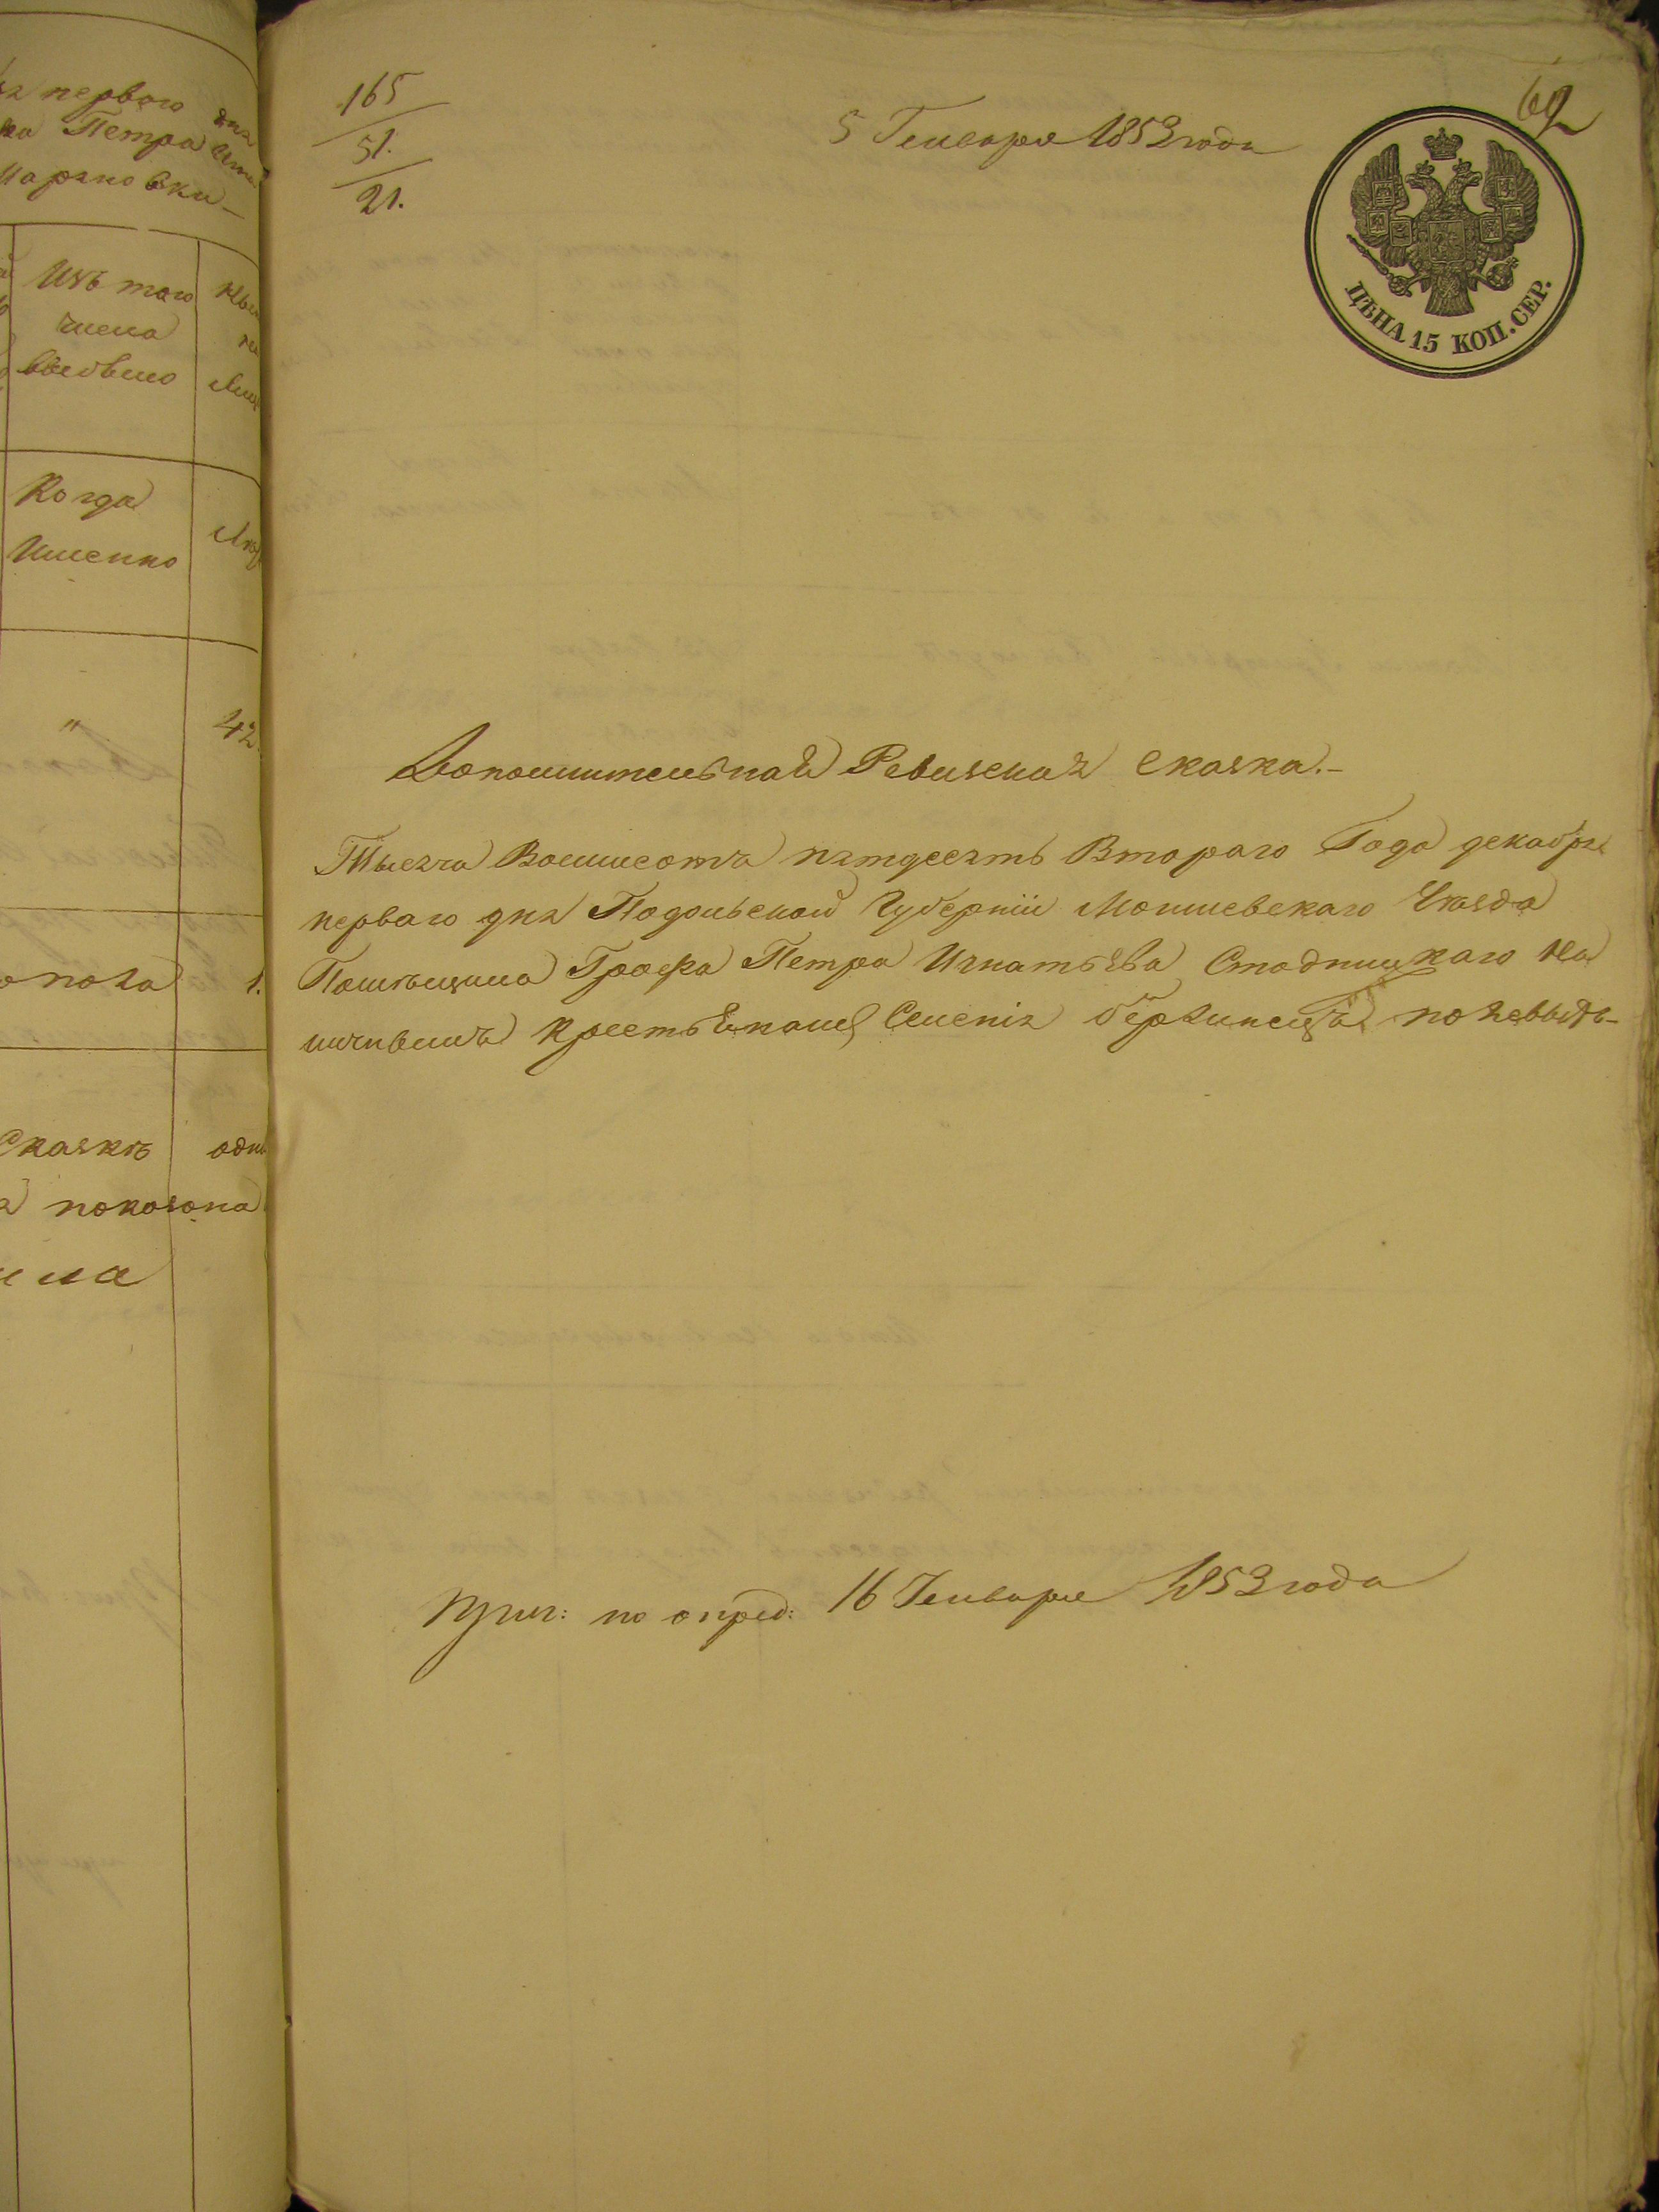 я первого дня
ка Петра Игна
Маряновки
Изъ того
числа
выбыло
Когда
Именно
"
42.
1.
Сказкѣ одна
показана
165
51.
21.
5 Генваря 1853 года
62
ЦѢНА 15 КОП. СЕР.
Дополнительная Ревизская Сказка.-
Тысяча Восемсотъ пятдесятъ Втораго Года декабря
перваго дня Подольской Губерніи Могилевскаго Уѣзда
Помѣщика Графа Петра Игнатьева Стадницкаго На
крестьянъ Селенія по ревизіи
Прил: по опред: 16 Генваря 1853 года